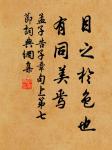 目之於色也
有同美焉
孟子告子章句上第七
節詞典網書